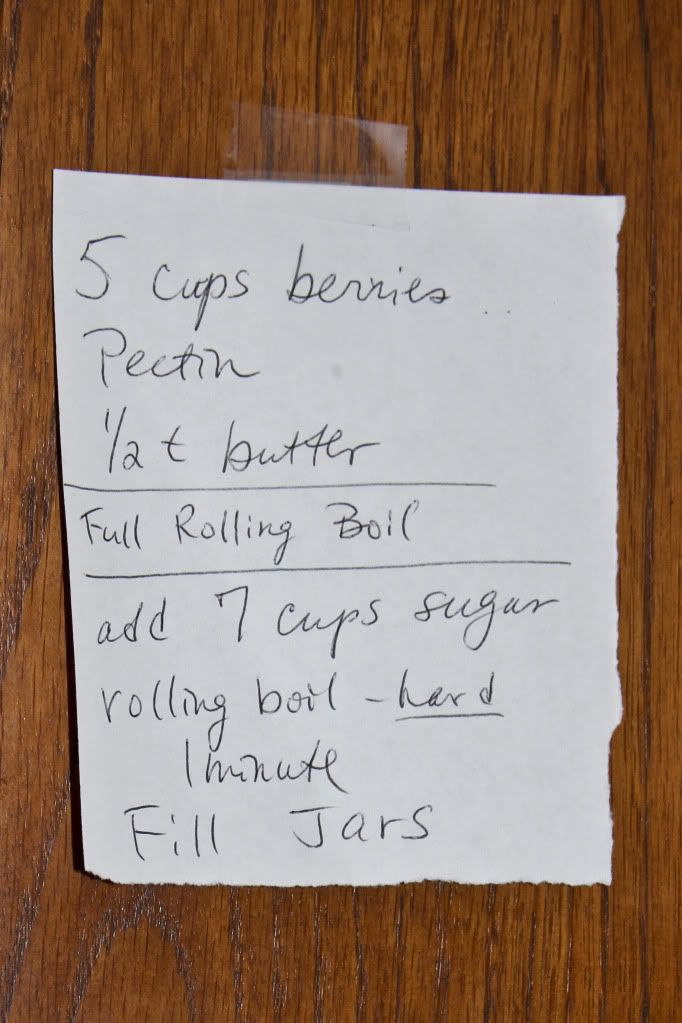 5 cups berries
Pectin
1/2 t butter
Full Rolling Boil
add 7 cups sugar
rolling boil - hard
1 minute
Fill Jars